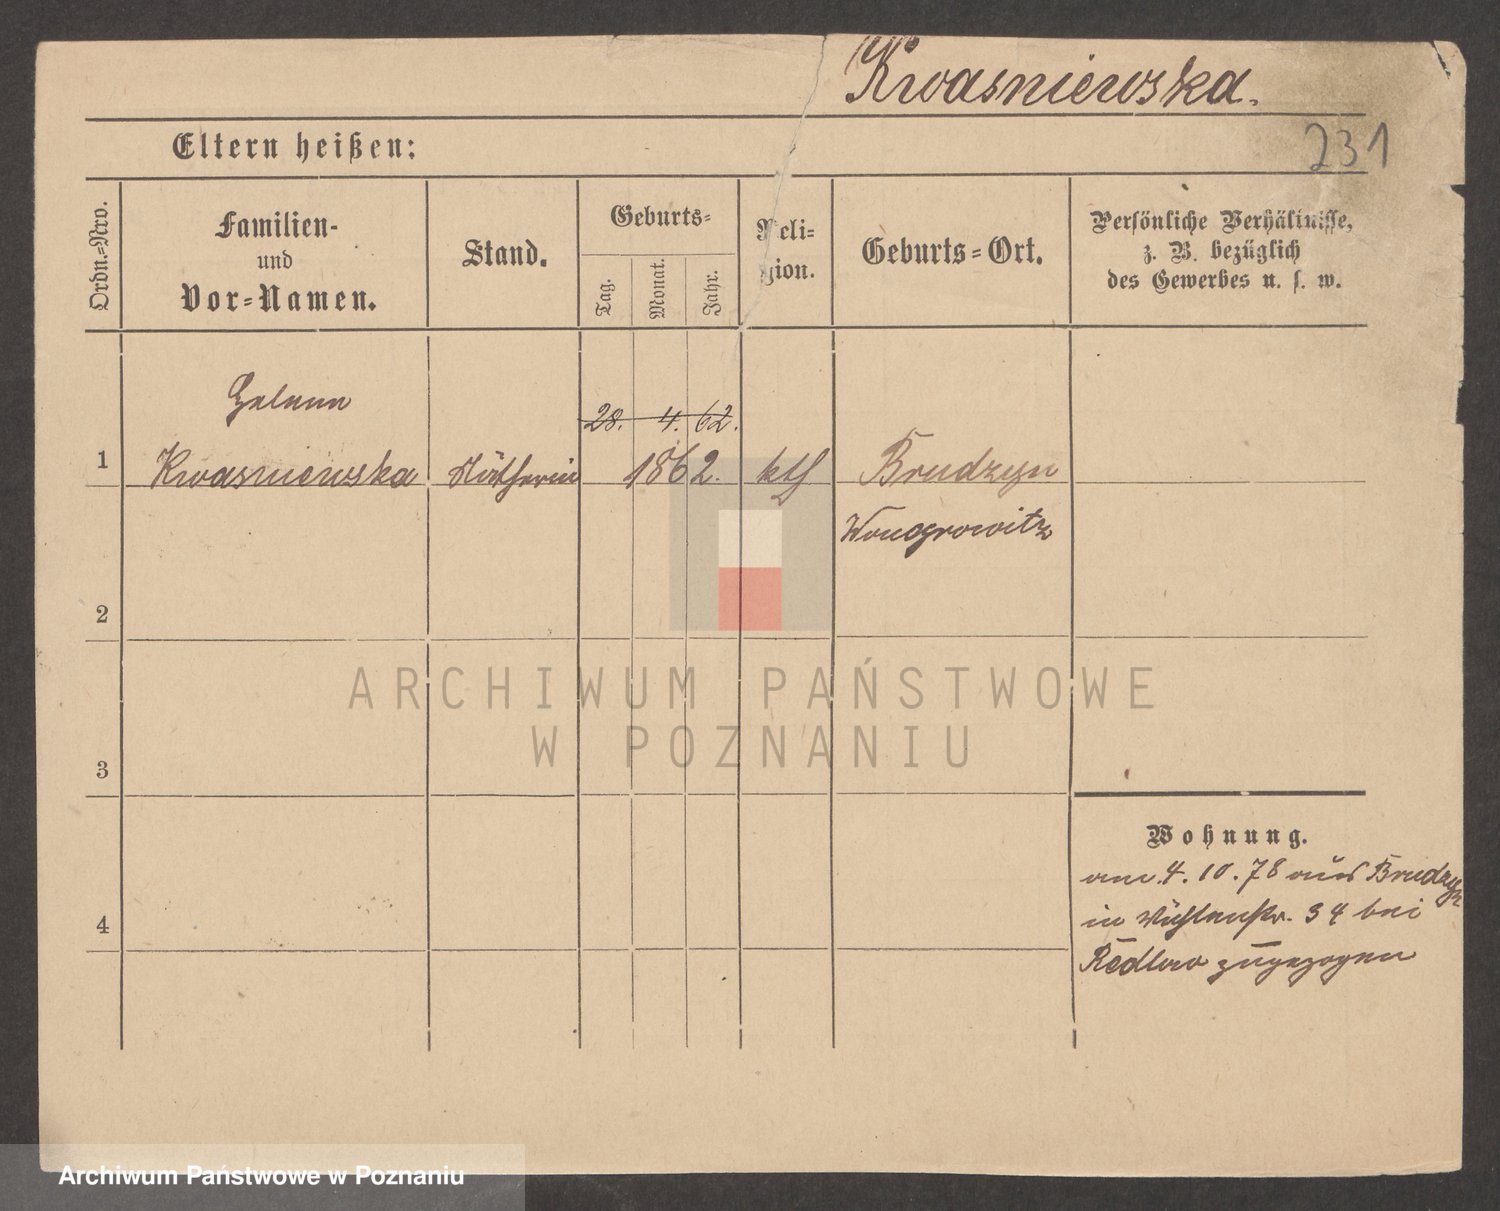 Kwasniewska.
231
Eltern heißen:
Ordn.=Nro.
Familien-
und
Vor=Namen.
Stand.
Geburts=
Tag.
Monat.
Jahr.
Reli=
gion.
Geburts=Ort.
Persönliche Verhältnisse,
z. B. bezüglich
des Gewerbes u. s. w.
1
Helena
Kwasniewska
Nätherin
28. 4. 62.
1862.
kth
Brudzyn
Wongrowitz
2
3
4
Wohnung.
am 4. 10. 78 aus Brudzyn
in 34 bei
Redlow zugezogen
ARCHIWUM PAŃSTWOWE
W POZNANIU
Archiwum Państwowe w Poznaniu